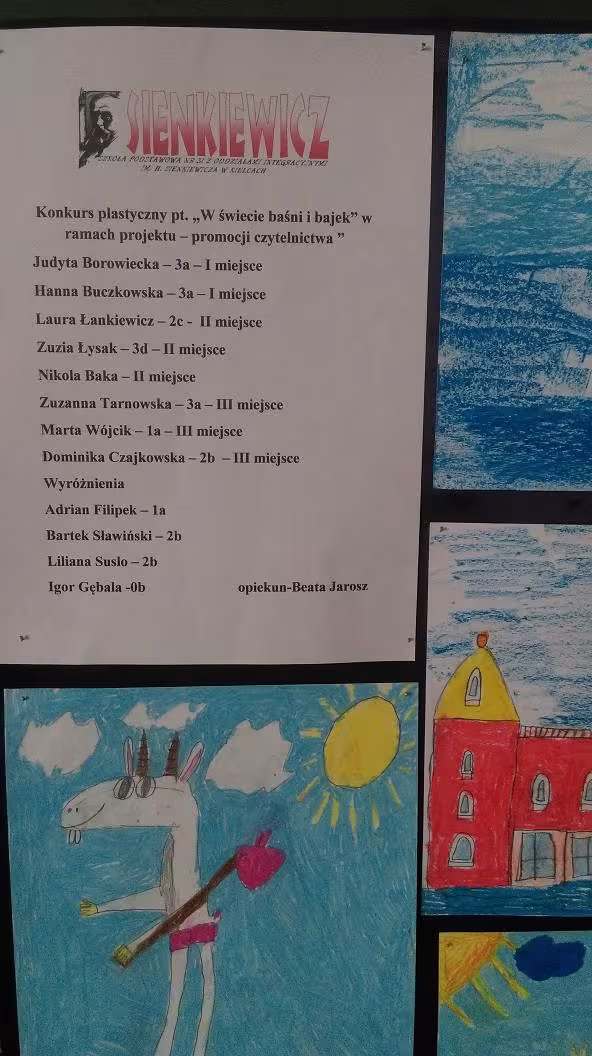 SIENKIEWICZ
SZKOŁA PODSTAWOWA NR 31 Z ODDZIAŁAMI INTEGRACYJNYMI
IM. H. SIENKIEWICZA W KIELCACH
Konkurs plastyczny pt. „W świecie baśni i bajek” w
ramach projektu – promocji czytelnictwa ”
Judyta Borowiecka – 3a – I miejsce
Hanna Buczkowska – 3a – I miejsce
Laura Łankiewicz – 2c - II miejsce
Zuzia Łysak – 3d – II miejsce
Nikola Baka – II miejsce
Zuzanna Tarnowska – 3a – III miejsce
Marta Wójcik – 1a – III miejsce
Dominika Czajkowska – 2b – III miejsce
Wyróżnienia
Adrian Filipek – 1a
Bartek Sławiński – 2b
Liliana Susło – 2b
Igor Gębala -0b opiekun-Beata Jarosz